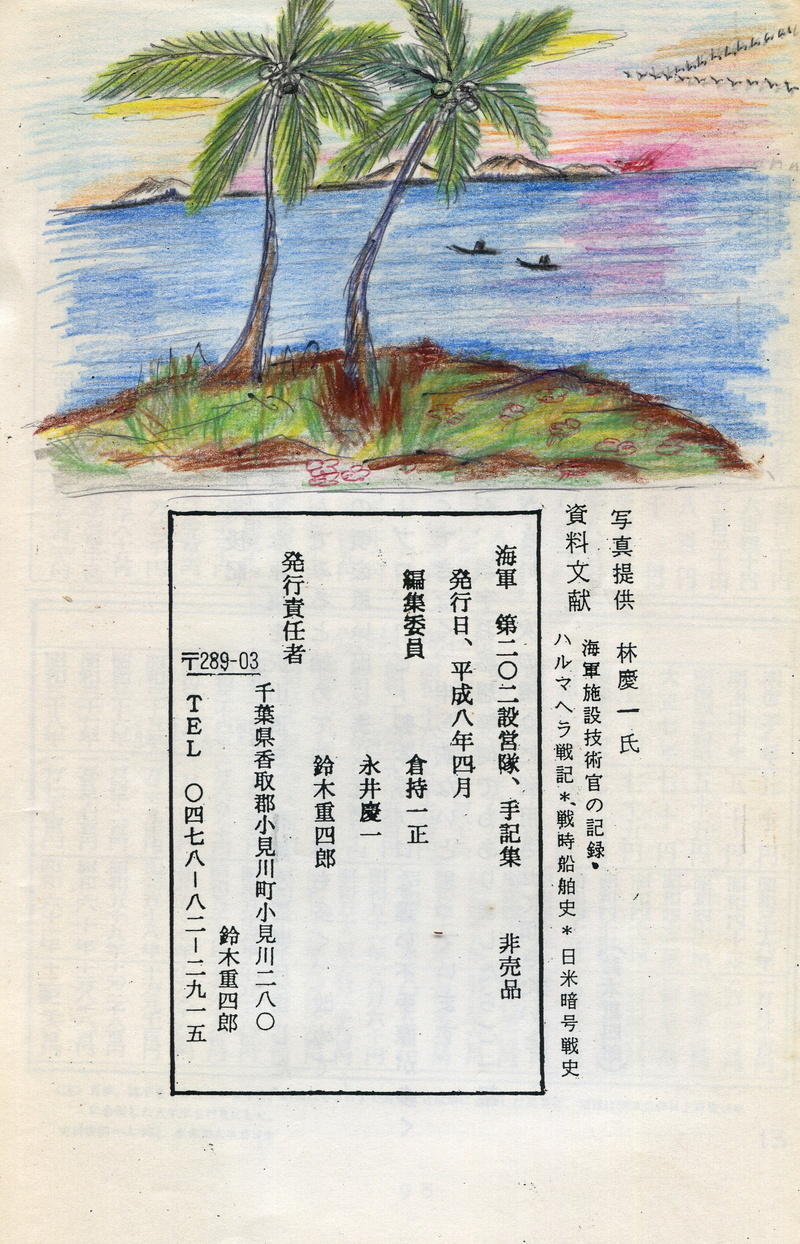 写真提供　林慶一氏
資料文献　海軍施設技術官の記録・
ハルマヘラ戦記＊戦時船舶史＊日米暗号戦史
海軍　第二〇二設営隊、手記集　非売品
発行日、平成八年四月
編集委員　倉持一正
永井慶一
鈴木重四郎
発行責任者
千葉県香取郡小見川町小見川二八〇
鈴木重四郎
〒289-03
TEL　〇四七八ー八二ー二九一五